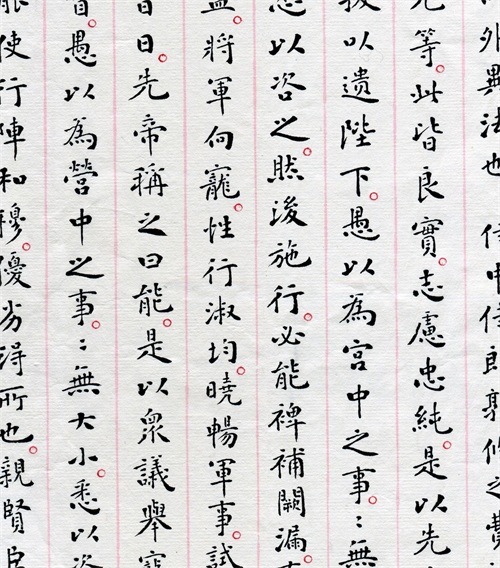 外異法也 侍中侍郎郭攸之費
允等。此皆良實。志慮忠純。是以先
拔以遺陛下。愚以為宮中之事。〻無
悉以咨之。然後施行。必能裨補闕漏。
益。將軍向寵。性行淑均。曉暢軍事。試
昔日。先帝稱之曰能。是以衆議舉寵
督。愚以為營中之事。〻無大小。悉以咨
能使行陣和穆。優劣得所也。親賢臣